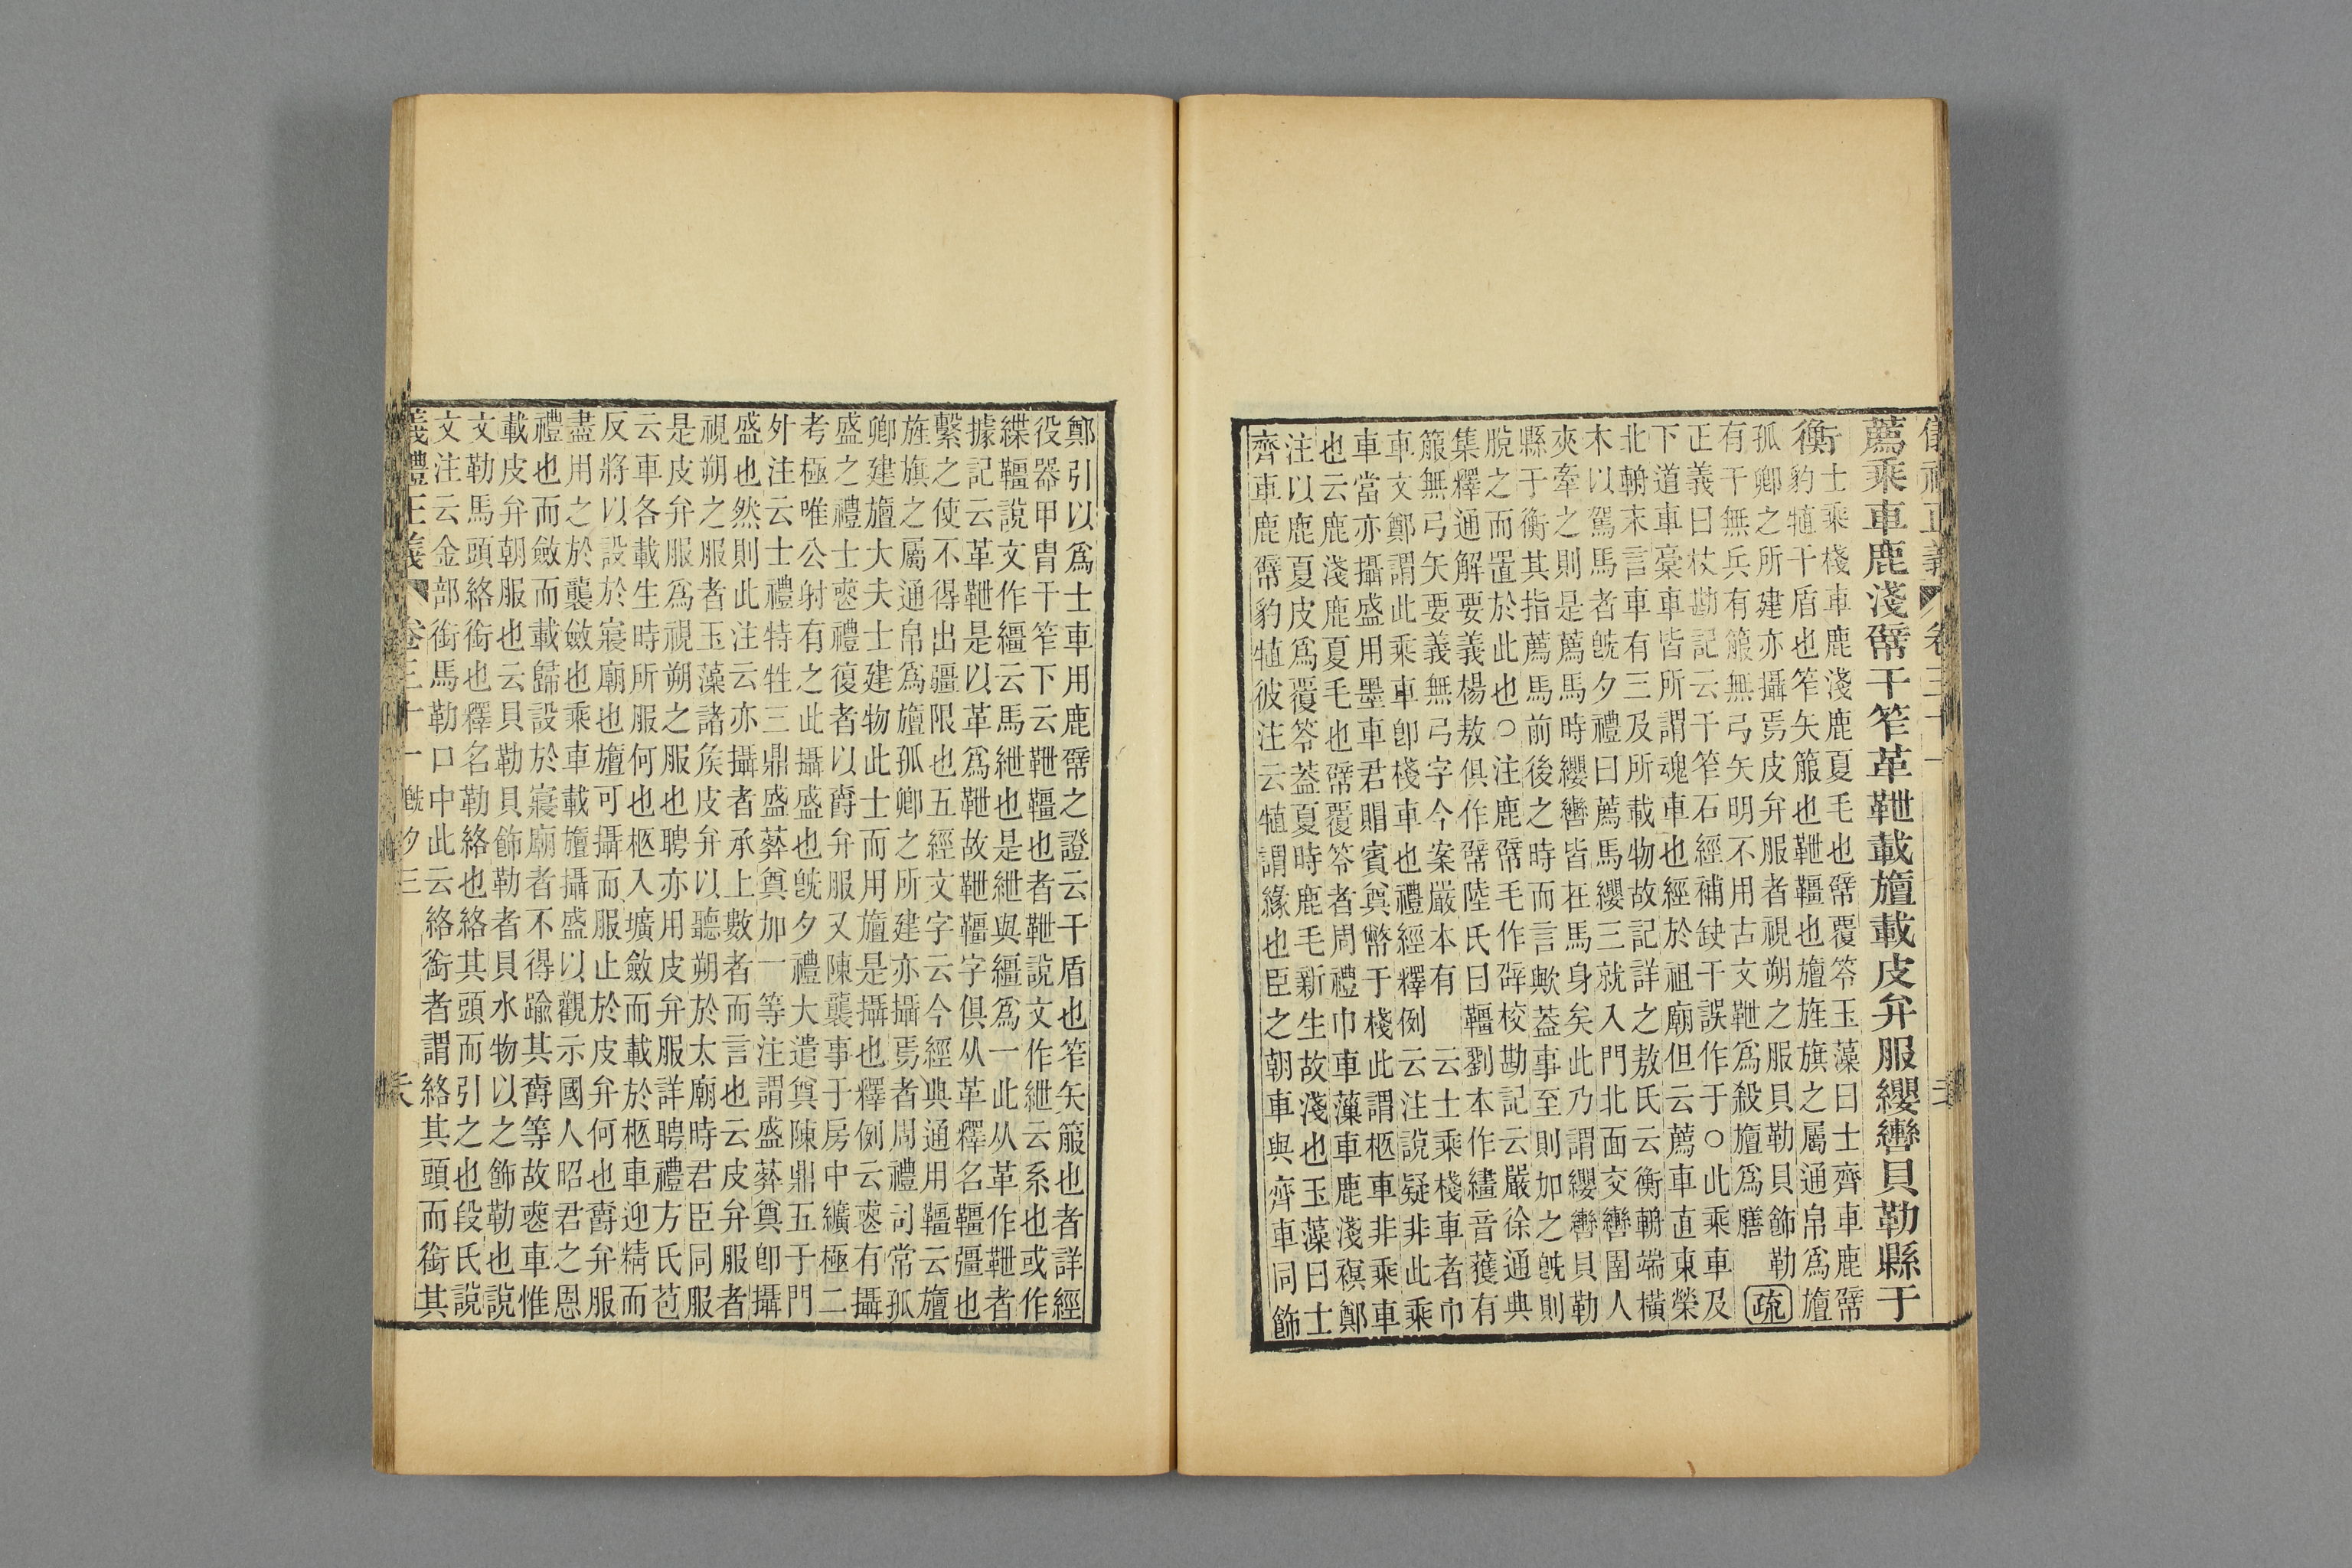 儀禮正義 卷三十一
薦乘車鹿淺幦干笮革靾載旜載皮弁服纓轡貝勒縣于
衡
士乘棧車鹿淺鹿夏毛也幦覆笭玉藻曰士齊車鹿幦
豹犆干盾也笮矢箙也靾韁也旜旌旗之屬通帛爲旜
孤卿之所建亦攝焉皮弁服者視朔之服貝勒貝飾勒
有干無兵有箙無弓矢明不用古文靾爲殺旜爲膳
疏
正義曰校勘記云干笮石經補缺干誤作于○此乘車及
下道車稾車皆所謂魂車也經於祖廟但云薦車直東榮
北輈末言車有三及所載物故記詳之敖氏云衡輈端橫
木以駕馬者旣夕禮曰薦馬纓三就入門北面交轡圉人
夾牽之則是薦馬時纓轡皆在馬身矣此乃謂纓轡貝勒
縣于衡其指薦馬前後之時而言歟葢事至則加之旣則
脫之而置於此也○注鹿幦毛作幦校勘記云嚴徐通典
集釋通解要義楊敖俱作幦陸氏曰韁劉本作繣音獲有
箙無弓矢要義無弓字今案嚴本有 云士乘棧車者巾
車文鄭謂此乘車卽棧車也禮經釋例云注說疑非此乘
車當亦攝盛用墨車君賵賓奠幣于棧此謂柩車非乘車
也云鹿淺鹿夏毛也幦覆笭者周禮巾車藻車鹿淺幎鄭
注以鹿夏皮爲覆笭葢夏時鹿毛新生故淺也玉藻曰士
齊車鹿幦豹犆彼注云犆謂緣也臣之朝車與齊車同飾
鄭引以爲士車用鹿幦之證云干盾也笮矢箙也者詳經
役器甲冑干笮下云靾韁也者靾說文作紲云系也或作
緤韁說文作繮云馬紲也是紲與繮爲一此从革作靾者
據記云革靾是以革爲靾故靾韁字俱从革釋名韁彊也
繫之使不得出疆限也五經文字云今經典通用韁云旜
旌旗之屬通帛爲旜孤卿之所建亦攝焉者周禮司常孤
卿建旜大夫士建物此士而用旜是攝也釋例云喪有攝
盛之禮士喪禮復者以爵弁服又陳襲事于房中纊極二
考極唯公射有之此攝盛也旣夕禮大遣奠陳鼎五于門
外注云士禮特牲三鼎盛葬奠加一等注謂盛葬奠卽攝
盛也然則此注云亦攝者承上數者而言也云皮弁服者
視朔之服者玉藻諸矦皮弁以聽朔於太廟時君臣同服
是皮弁服爲視朔之服也聘亦用皮弁服詳聘禮方氏苞
云車各載生時所服何也柩入壙斂而載於柩車迎精而
反將以設於寢廟也旜可攝而服止於皮弁何也爵弁服
盡用之於襲斂也乘車載旜攝盛以觀示國人昭君之恩
禮也而斂而載歸設於寢廟者不得踰其爵等故喪車惟
載皮弁朝服也云貝勒貝飾勒者貝水物以之飾勒也說
文勒馬頭絡銜也釋名勒絡也絡其頭而引之也段氏說
文注云金部銜馬勒口中此云絡銜者謂絡其頭而銜其
儀禮正義 卷三十一 旣夕三